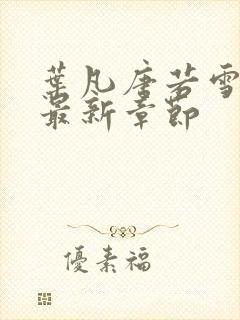 葉凡唐若雪
最新章節
優素福